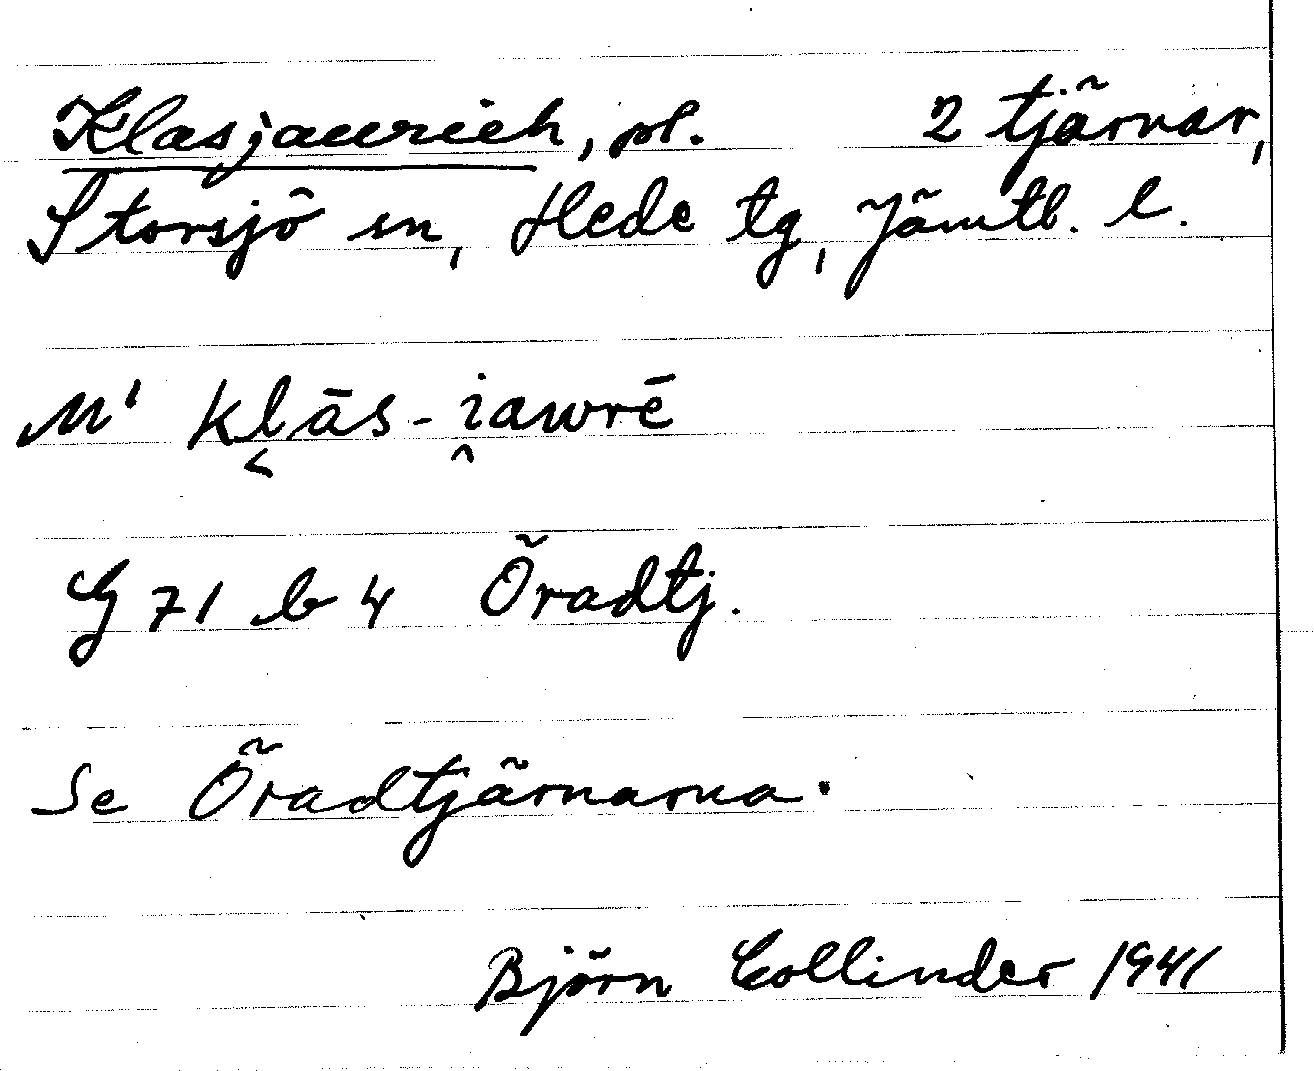 Klasjaurieh, pl. 2 tjärnar,
Storsjö sn, Hede tg, Jämtl. l.
M' kl̬ās-i̭awrē
G 71 b 4 Öradtj.
Se Öradtjärnarna.
Björn Collinder 1941